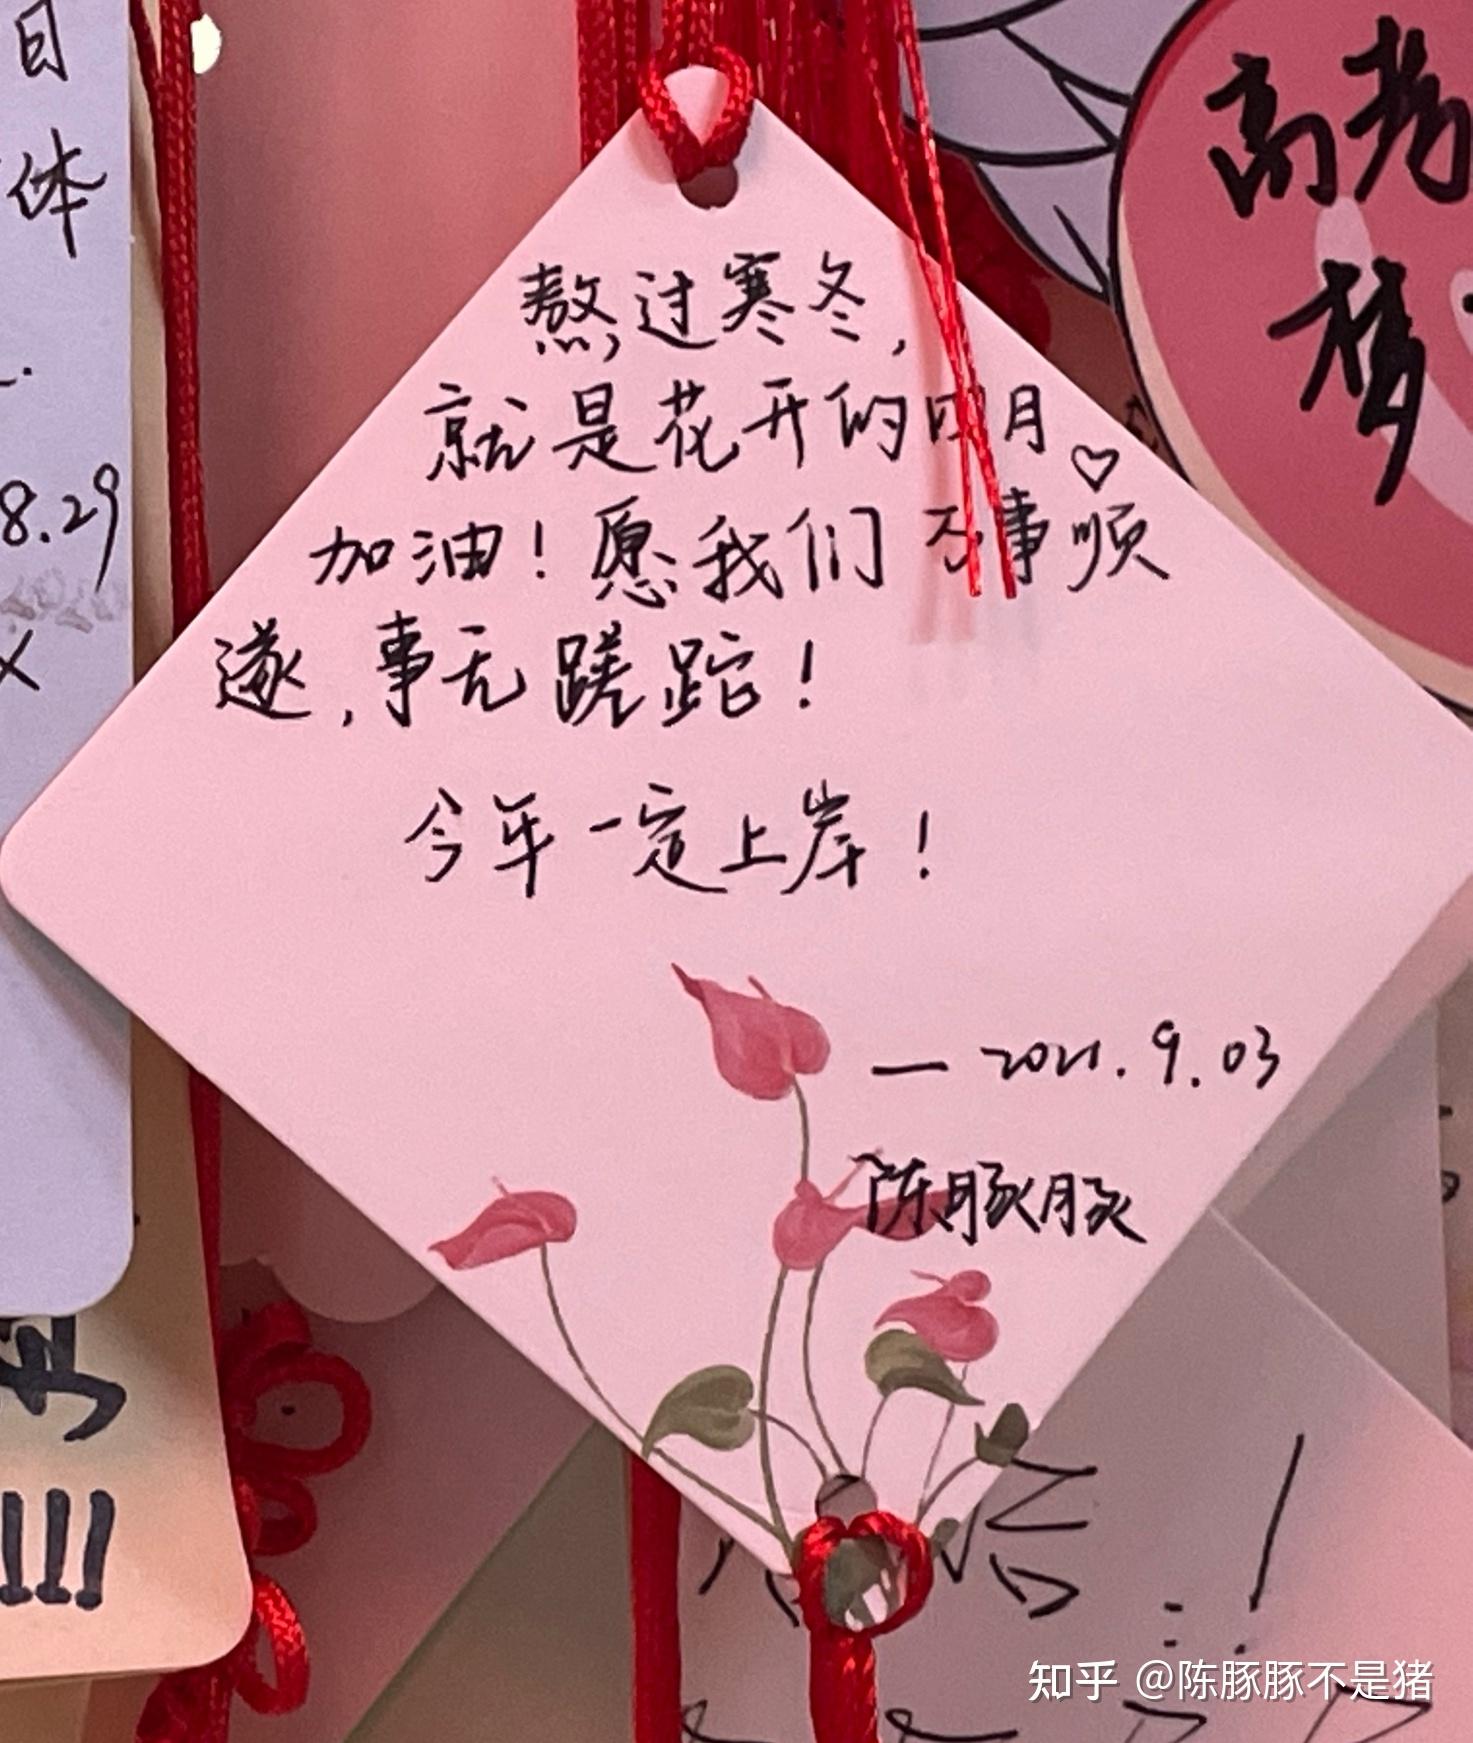 熬过寒冬，
就是花开的明月♡
加油！愿我们 万事顺
遂，事无蹉跎！
今年一定上岸！
— 2021.9.03
陈豚豚
高考
日
体
8.29
知乎 @陈豚豚不是猪